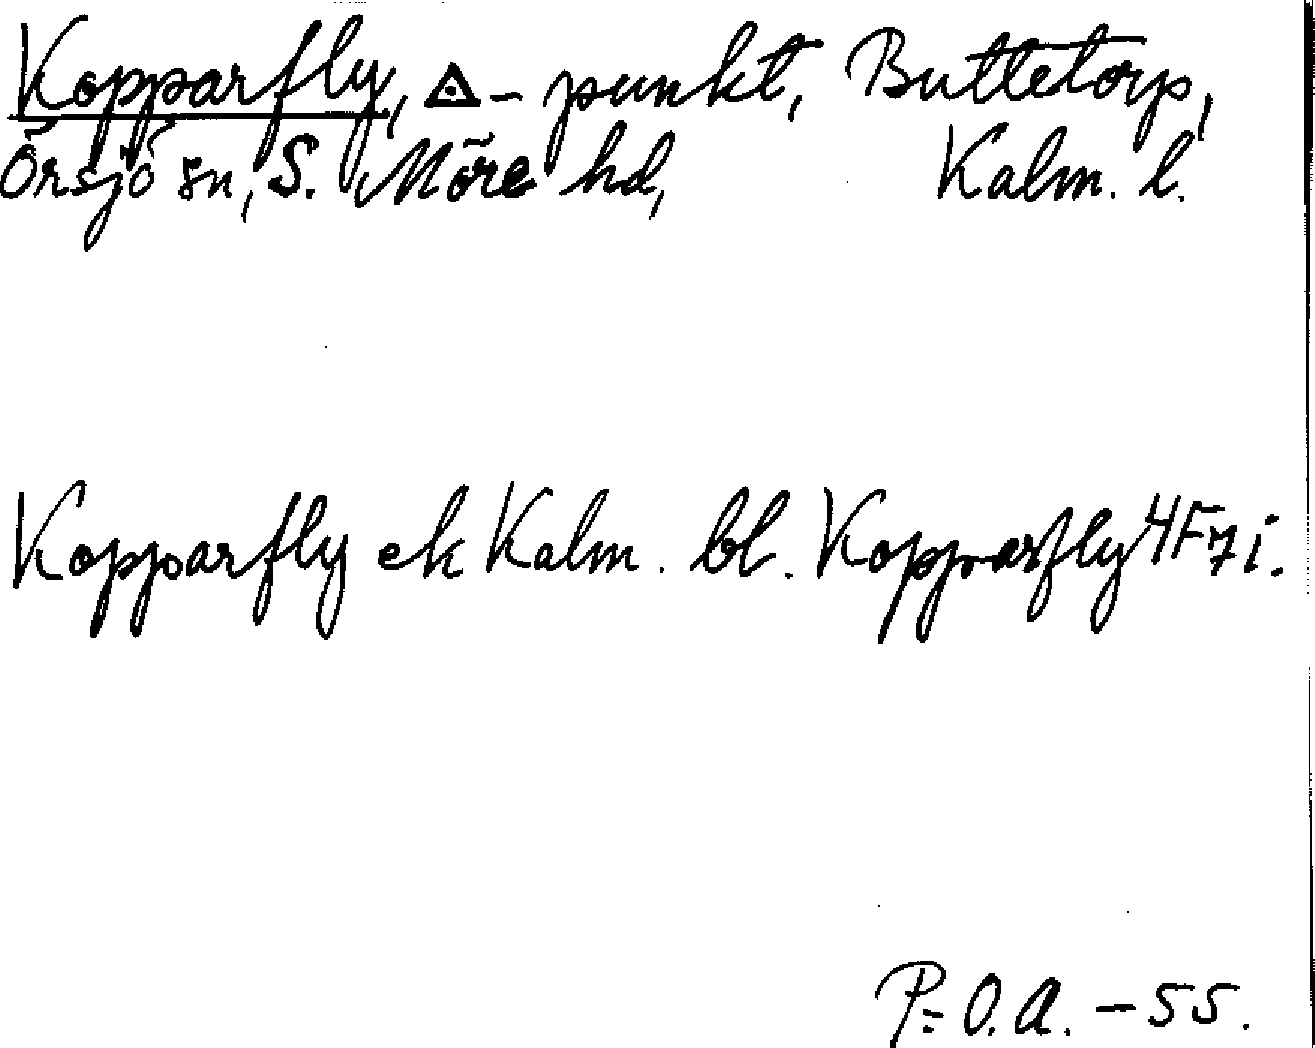 Kopparfly, △-punkt, Buttetorp,
Örsjö sn, S. Möre hd, Kalm. l.
Kopparfly ek Kalm. bl. Kopparfly 4F7i.
P:O.A. -55.